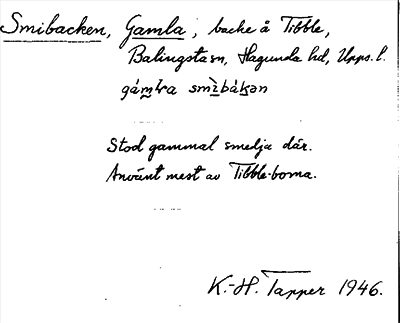 Smibacken, Gamla, backe å Tibble,
Balingsta sn, Hagunda hd, Upps. l.
gám̬l̬a smìbákən
Stod gammal smedja där.
Använt mest av Tibble-borna.
K.-H. Tapper 1946.